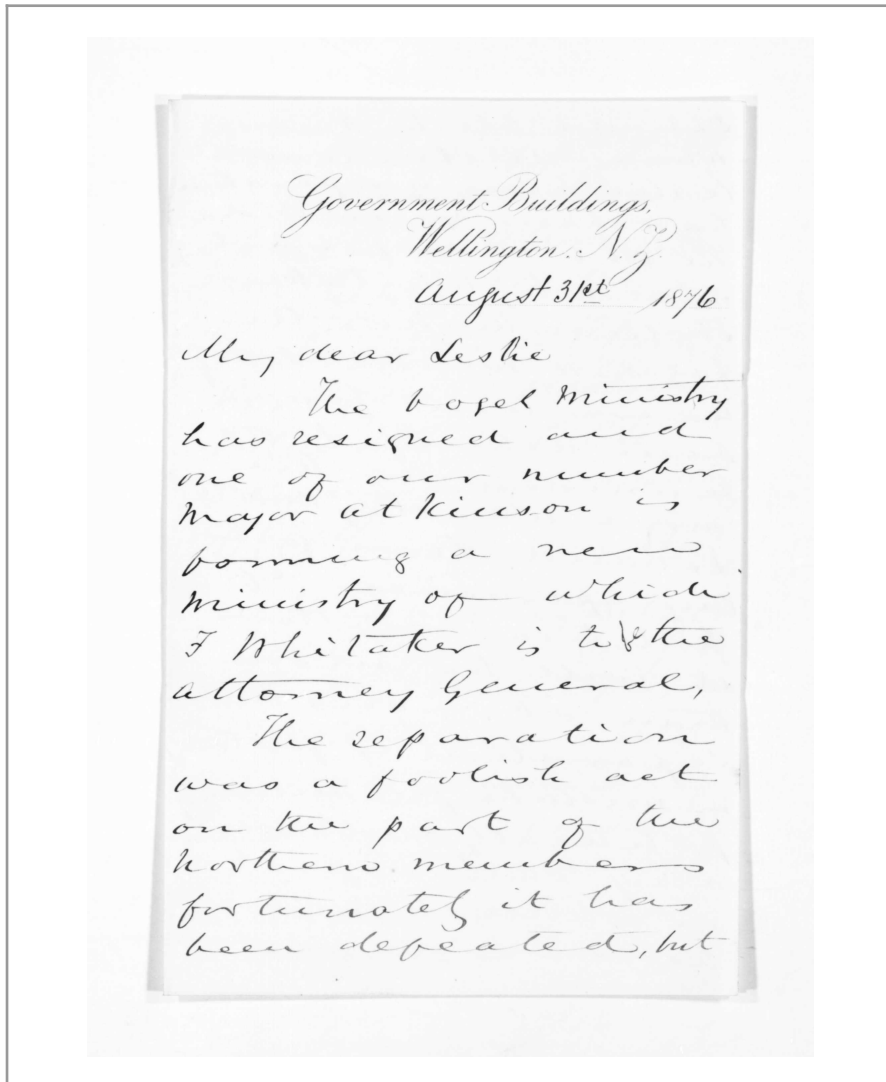 Government Buildings,
Wellington. N.Z.
August 31st 1876
My dear Leslie
The Vogel Ministry
has resigned and
one of our number
Major Atkinson is
forming a new
Ministry of which
F Whitaker is to be the
Attorney General,
The separation
was a foolish act
on the part of the
Northern members
fortunately it has
been defeated, but